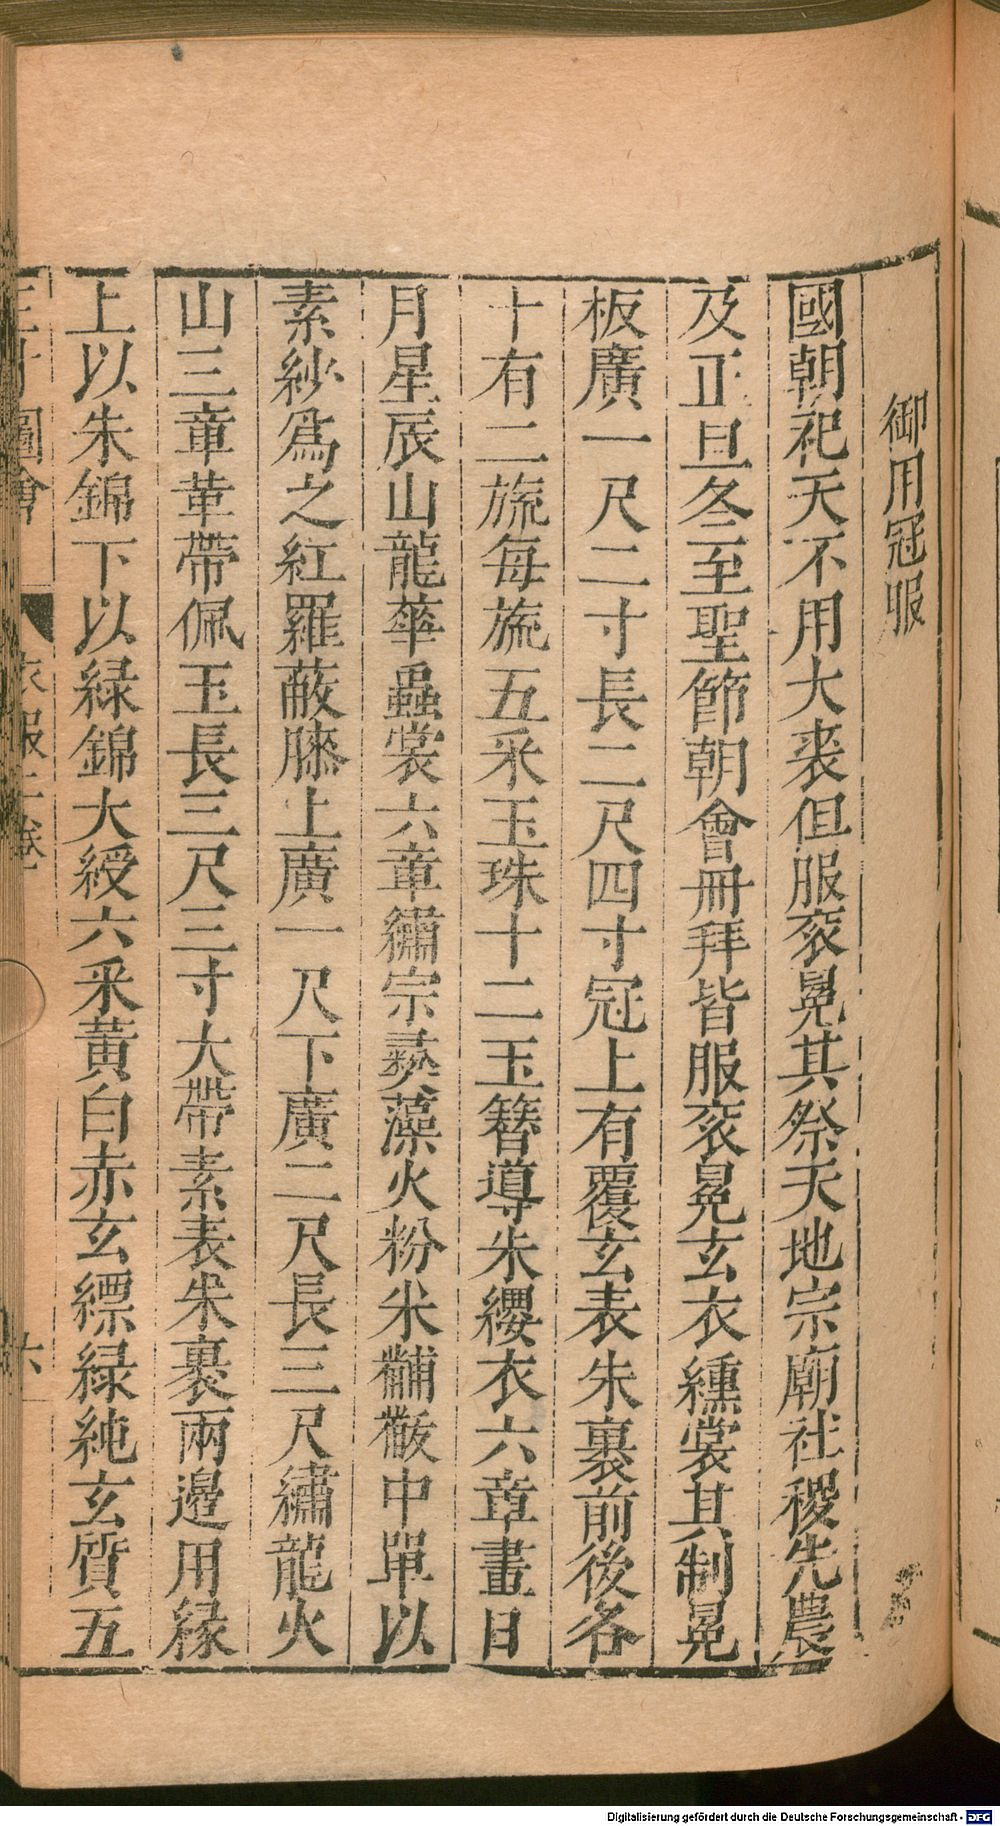 御用冠服
國朝祀天不用大裘但服衮冕其祭天地宗廟社稷先農
及正旦冬至聖節朝會冊拜皆服衮冕玄衣纁裳其制冕
板廣一尺二寸長二尺四寸冠上有覆玄表朱裏前後各
十有二旒每旒五采玉珠十二玉簪導朱纓衣六章畫日
月星辰山龍華蟲裳六章繡宗彞藻火粉米黼黻中單以
素紗爲之紅羅蔽膝上廣一尺下廣二尺長三尺繡龍火
山三章革帶佩玉長三尺三寸大帶素表朱裏兩邊用緣
上以朱錦下以緑錦大綬六采黄白赤玄縹緑純玄質五
三才圖會 衣服二卷 六
Digitalisierung gefördert durch die Deutsche Forschungsgemeinschaft - DFG